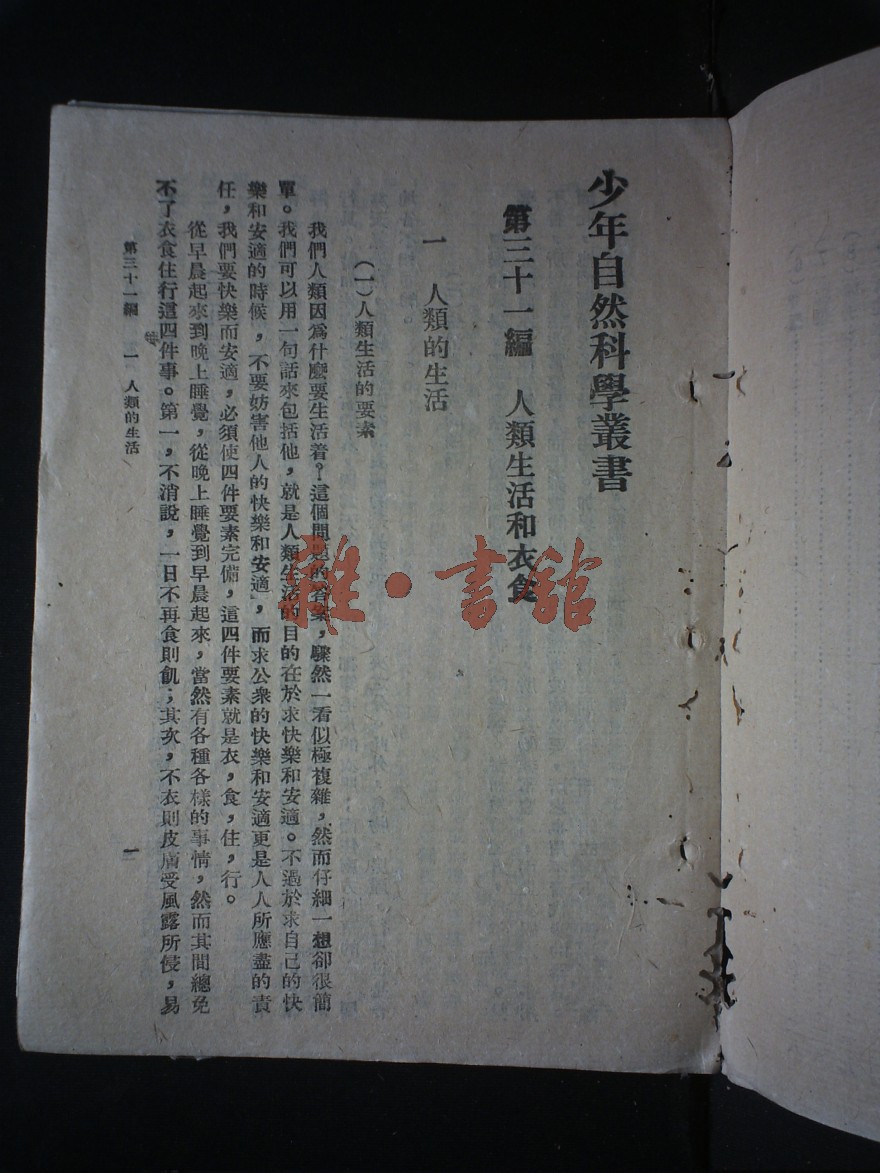 少年自然科學叢書
第三十一編　人類生活和衣食
一　人類的生活
(一)人類生活的要素
我們人類因爲什麼要生活着？這個問題的答案，驟然一看似極複雜，然而仔細一想卻很簡
單。我們可以用一句話來包括他，就是人類生活的目的在於求快樂和安適。不過於求自己的快
樂和安適的時候，不要妨害他人的快樂和安適，而求公衆的快樂和安適更是人人所應盡的責
任，我們要快樂而安適，必須使四件要素完備，這四件要素就是衣，食，住，行。
從早晨起來到晚上睡覺，從晚上睡覺到早晨起來，當然有各種各樣的事情，然而其間總免
不了衣食住行這四件事。第一，不消說，一日不再食則飢；其次，不衣則皮膚受風露所侵，易
第三十一編　一　人類的生活
一
雜·書館